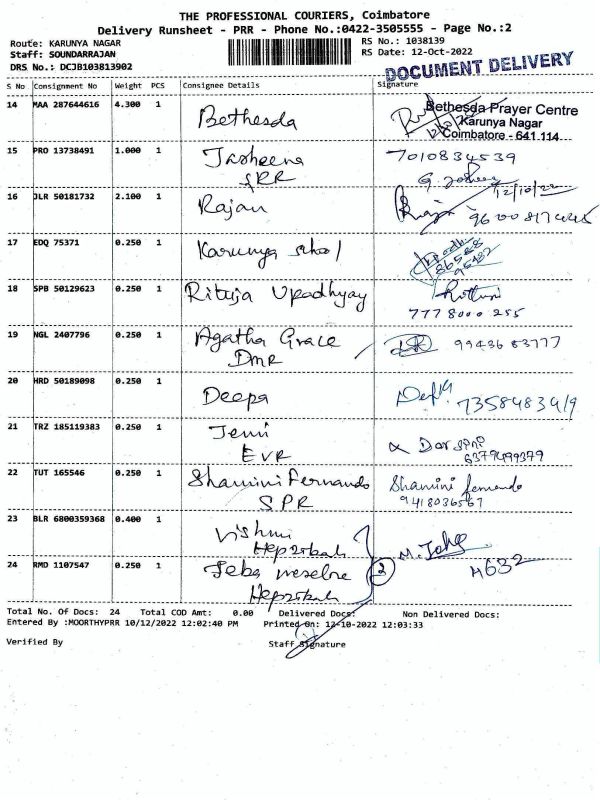 THE PROFESSIONAL COURIERS, Coimbatore
Delivery Runsheet - PRR - Phone No.:0422-3505555 - Page No.:2
Route: KARUNYA NAGAR
RS No.: 1038139
Staff: SOUNDARRAJAN
RS Date: 12-Oct-2022
DRS No.: DCJB103813902
DOCUMENT DELIVERY
S No Consignment No Weight PCS Consignee Details Signature
14 MAA 287644616 4.300 1 Bethesda
Bethesda Prayer Centre
Karunya Nagar
Coimbatore - 641 114
15 PRO 13738491 1.000 1 Jasheena 7010834539
SRR
16 JLR 50181732 2.100 1 Rajan 12/10/22
17 EDQ 75371 0.250 1 Karunya school
18 SPB 50129623 0.250 1 Rituja Upadhyay
7778000 255
19 NGL 2407796 0.250 1 Agatha Grace 99436 83777
DMR
20 HRD 50189098 0.250 1 Deepa
21 TRZ 185119383 0.250 1 Jemi
EVR 6379499379
22 TUT 165546 0.250 1 Shamini Fernando Shamini fernando
SPR 9418036567
23 BLR 6800359368 0.400 1
Hepzibah
24 RMD 1107547 0.250 1 Jeba 2 4632
Hepzibah
Total No. Of Docs: 24 Total COD Amt: 0.00 Delivered Docs: Non Delivered Docs:
Entered By :MOORTHYPRR 10/12/2022 12:02:40 PM Printed On: 12-10-2022 12:03:33
Verified By Staff Signature